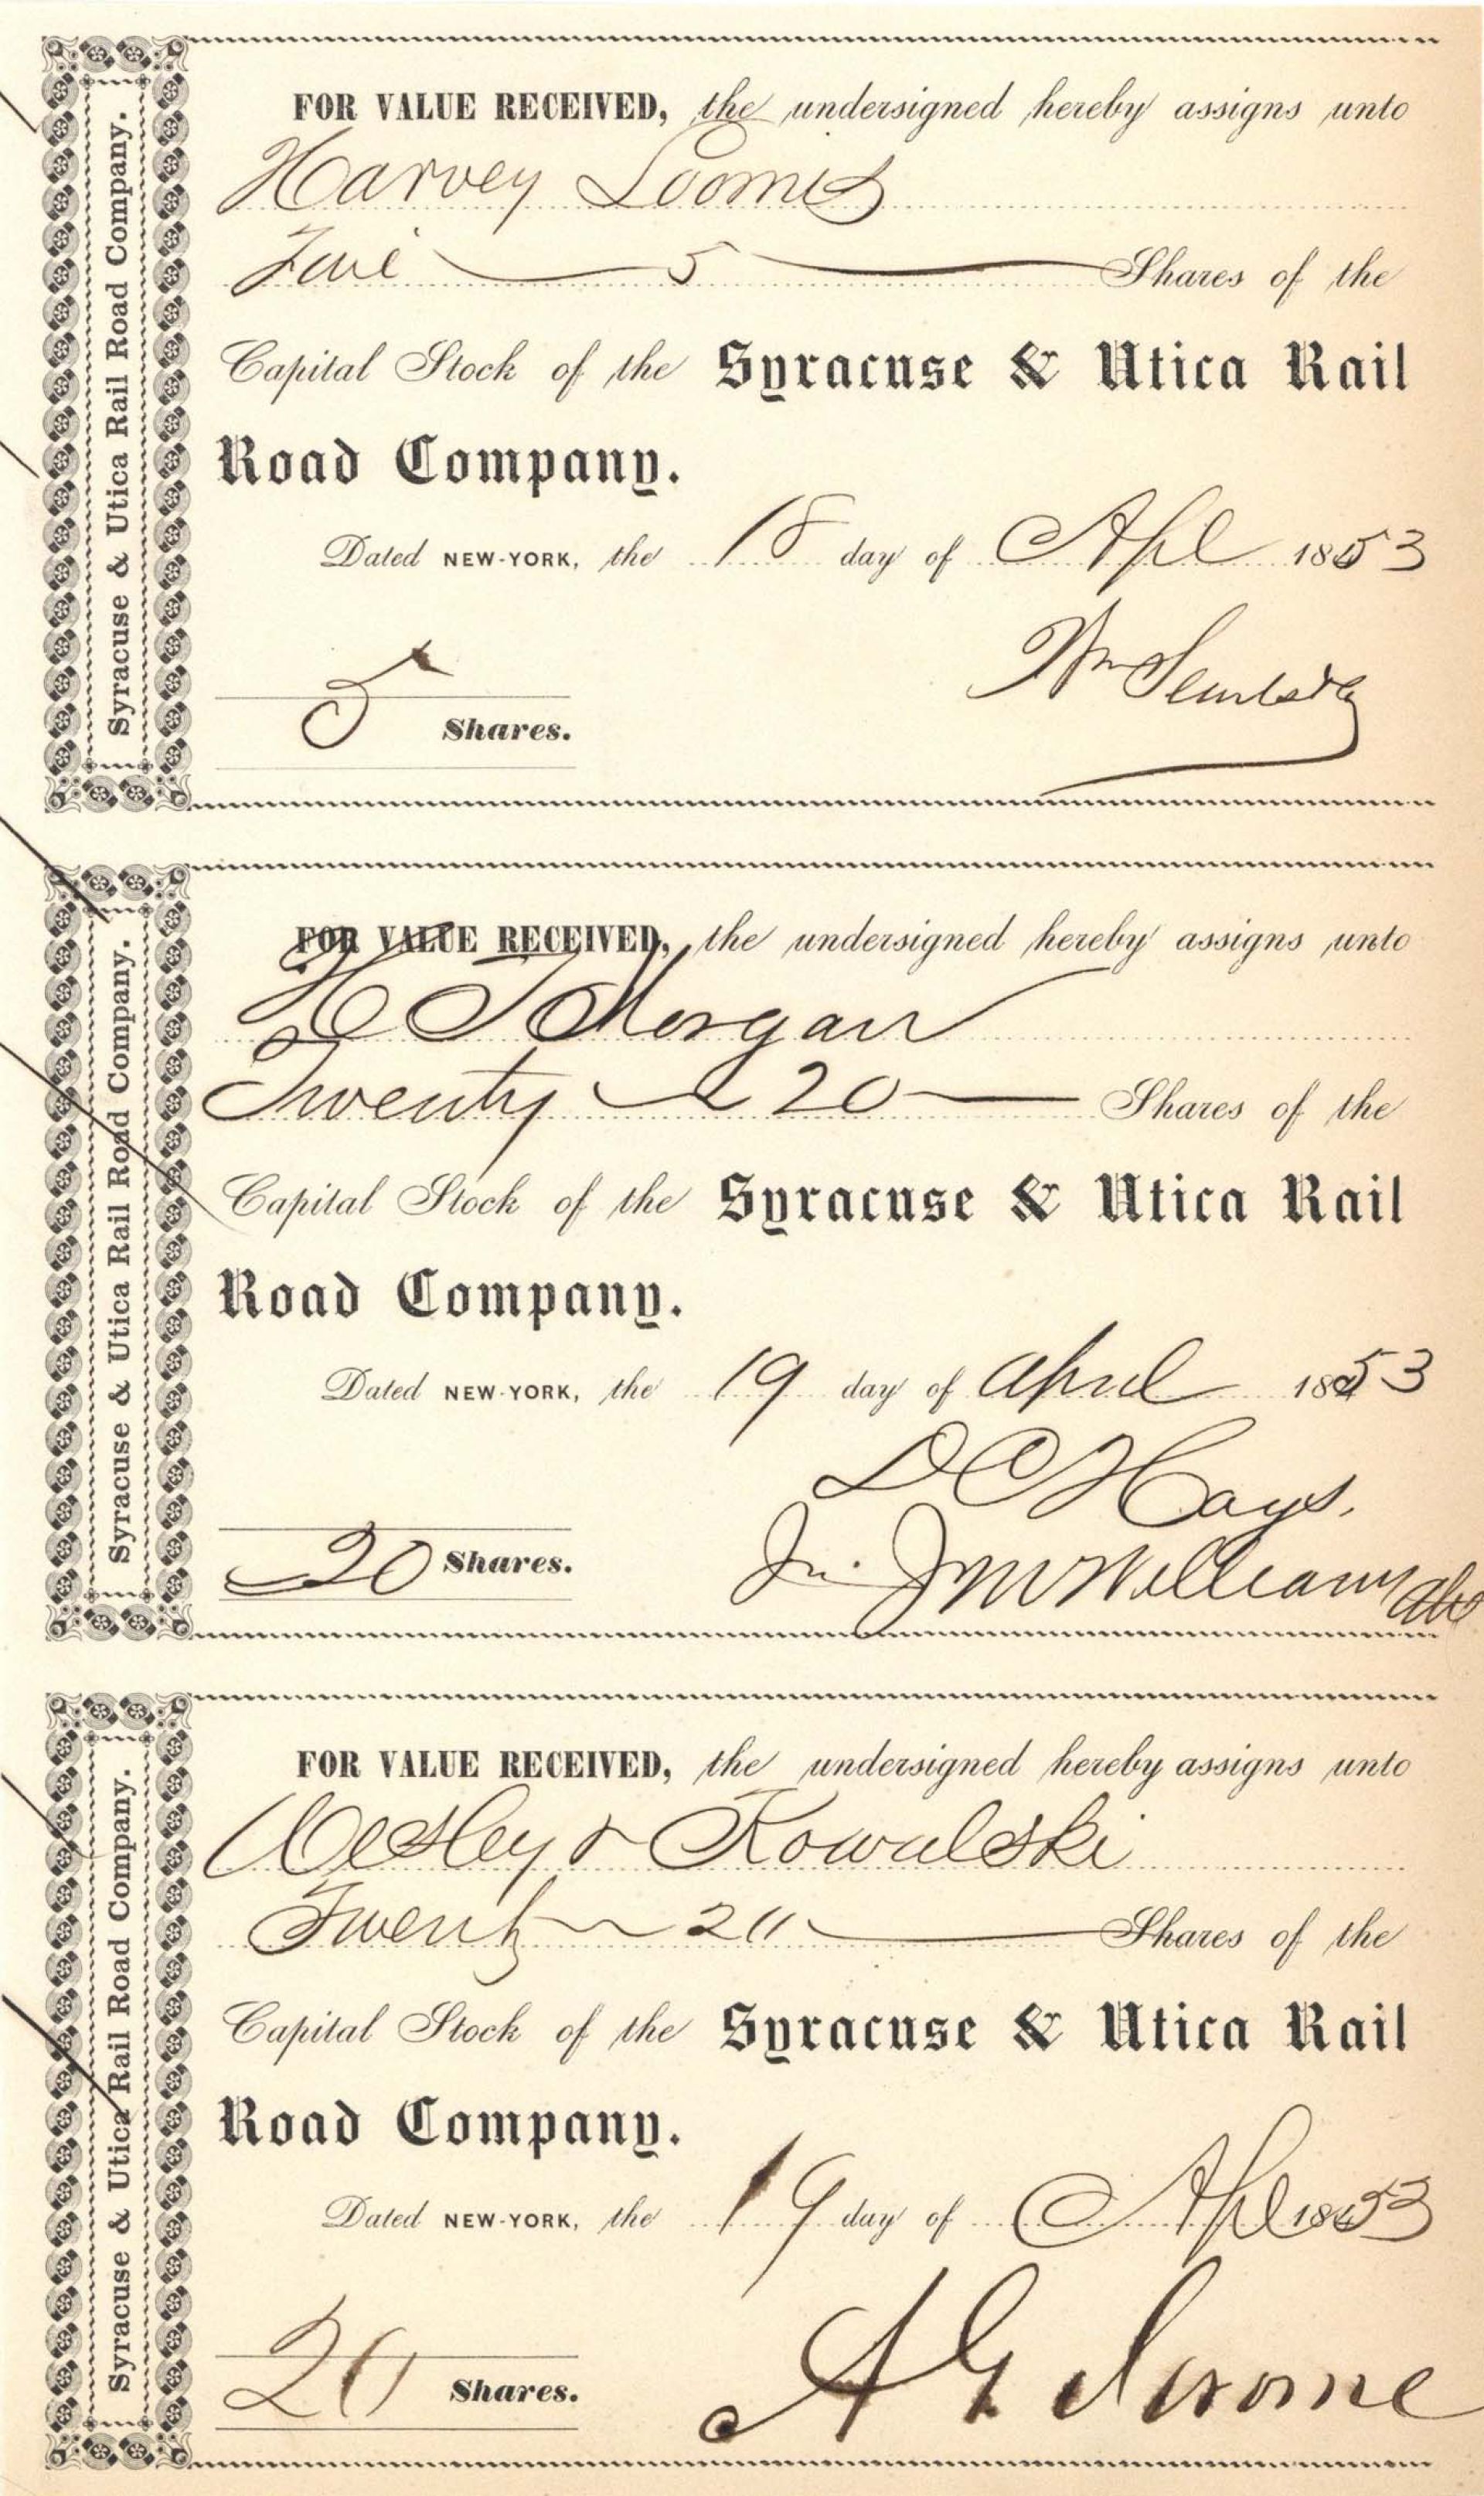 Syracuse & Utica Rail Road Company.
FOR VALUE RECEIVED, the undersigned hereby assigns unto
Harvey Loomis
Five 5 Shares of the
Capital Stock of the Syracuse & Utica Rail
Road Company.
Dated NEW-YORK, the 18 day of Apl 1853
Wm
5 Shares.
Syracuse & Utica Rail Road Company.
FOR VALUE RECEIVED, the undersigned hereby assigns unto
H T Morgan
Twenty 20 Shares of the
Capital Stock of the Syracuse & Utica Rail
Road Company.
Dated NEW-YORK, the 19 day of April 1853
D C Hays.
20 Shares.
Williams
Syracuse & Utica Rail Road Company.
FOR VALUE RECEIVED, the undersigned hereby assigns unto
Wesley & Kowalski
Twenty 20 Shares of the
Capital Stock of the Syracuse & Utica Rail
Road Company.
Dated NEW-YORK, the 19 day of Apl 1853
20 Shares.
A G Jerome